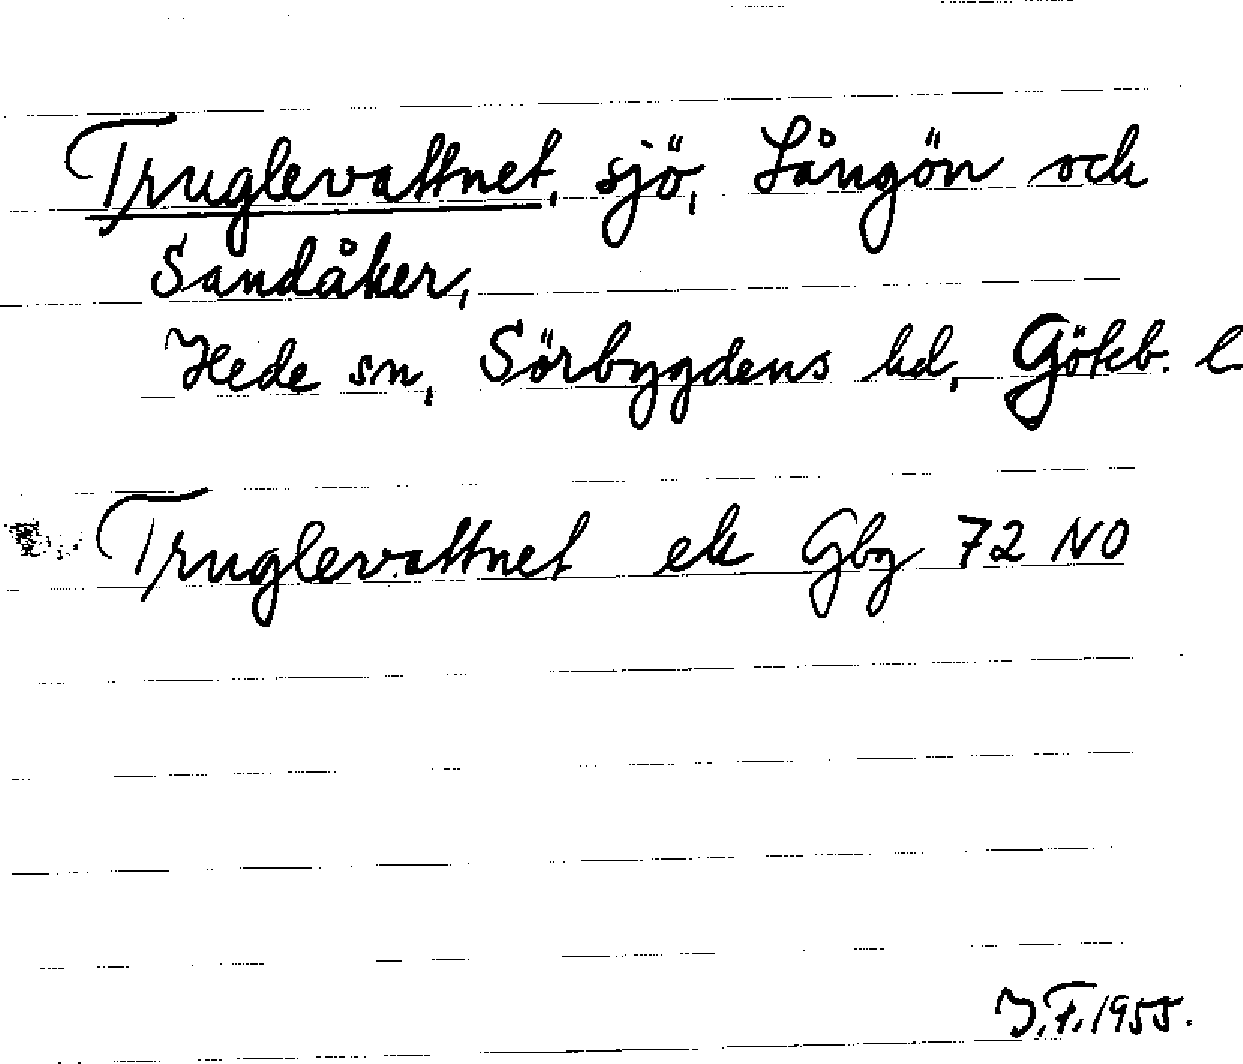 Truglevattnet, sjö, Långön och
Sandåker,
Hede sn, Sörbygdens hd, Göteb. l
Truglevattnet ek Gbg 72 NO
J.F. 1955.